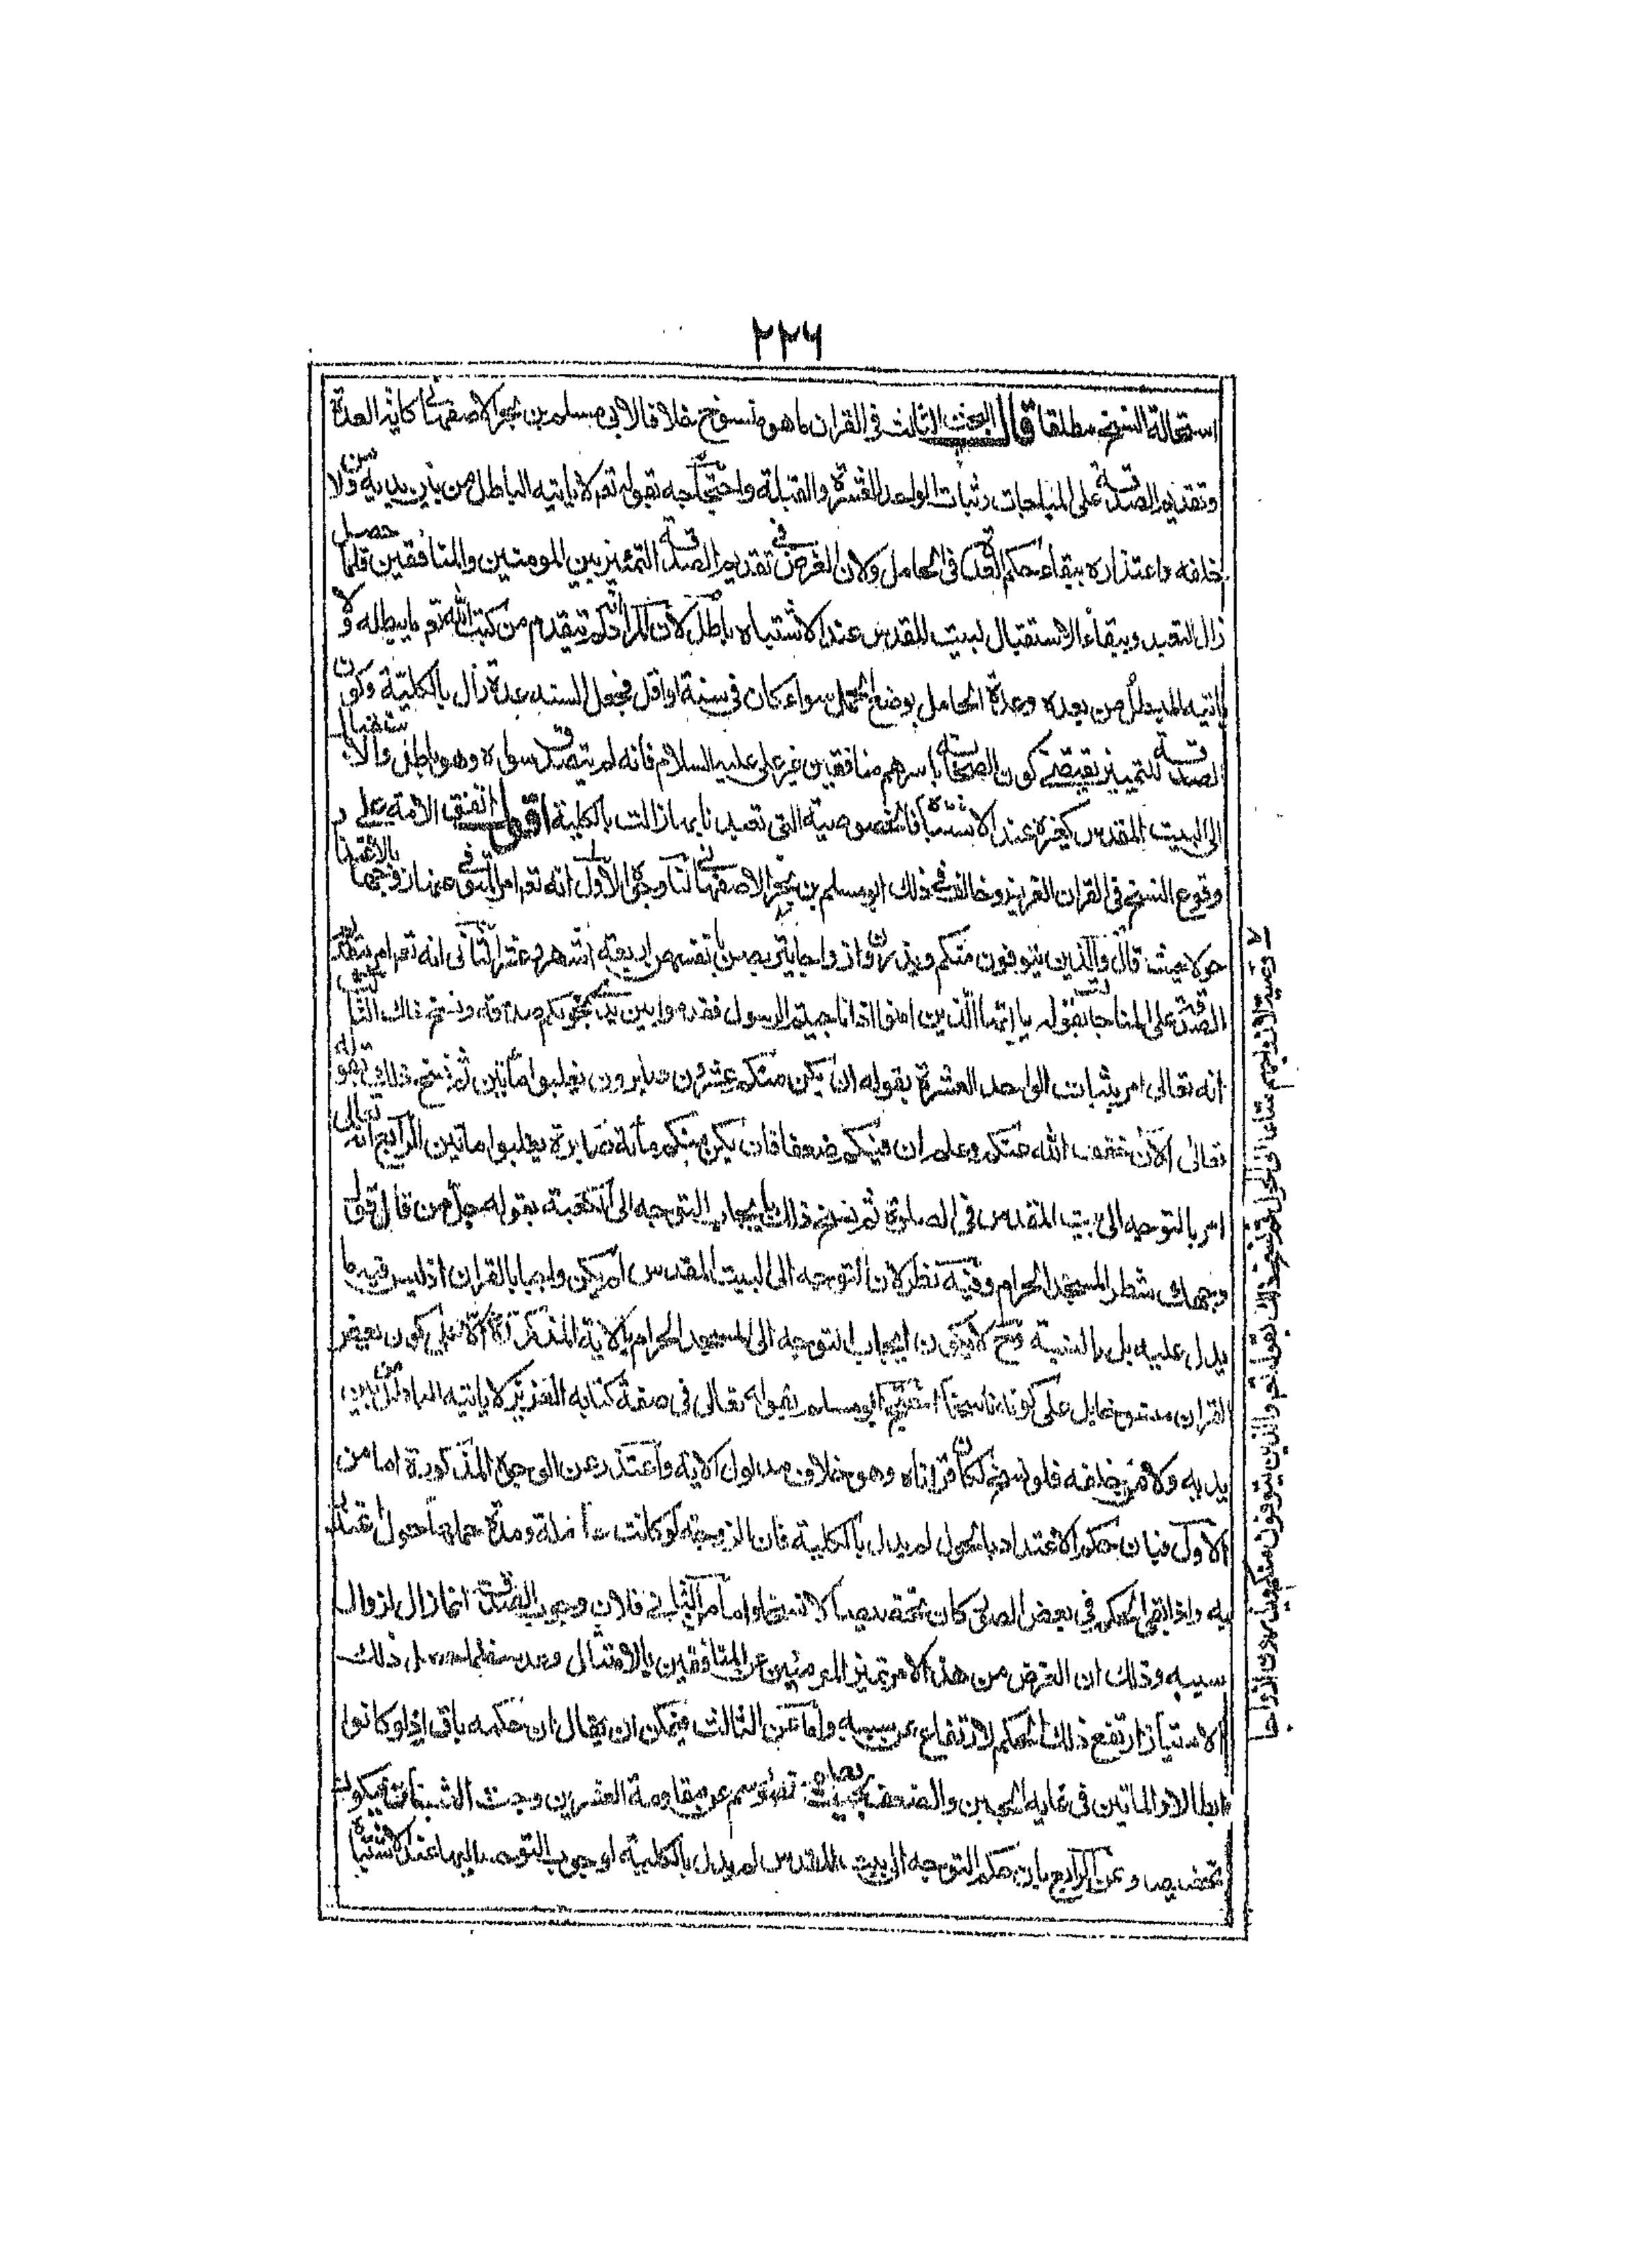 ٢٢٦
استحالة النسخ مطلقا قال البحث الثالث في القران ما هو منسوخ خلافا لابي مسلم بن بحر الاصفهاني كاية العدة
وتقديم الصدقة على المناجات وثبات الواحد للعشرة والقبلة واحتجاجه بقوله تعم لا ياتيه الباطل من بين يديه ولا من
خلفه واعتذاره ببقاء حكم العدة في الحامل ولان الغرض في تقديم الصدقة التمييز بين المومنين والمنافقين فلما حصل
زال التعبد وببقاء الاستقبال لبيت المقدس عند الاشتباه باطل لان المراد انه لم يتقدم من كتب الله تعم ما يبطله ولا
ياتيه المبطل من بعده وعدة الحامل بوضع الحمل سواء كان في سنة او اقل فجعل السنه عدة زال بالكلية وكون
الصدقة للتمييز يقتضي كون الصحابة باسرهم منافقين غير علي عليه السلام فانه لم يتصدق سواه وهو باطل والاستقبال
الى البيت المقدس كغيره عند الاشتباه فالخصوصية التي تعبدنا بها زالت بالكلية اقول اتفق الامة على
وقوع النسخ في القران العزيز وخالف في ذلك ابو مسلم بن بحر الاصفهاني لنا وجوه الاول انه تعم امر المتوفى عنها زوجها بالاعتداد
حولا حيث قال والذين يتوفون منكم ويذرون ازواجا يتربصن بانفسهن اربعة اشهر وعشرا الثاني انه تعم امر بتقديم
الصدقة على المناجات بقوله يا ايها الذين امنوا اذا ناجيتم الرسول فقدموا بين يدي نجويكم صدقة ونسخ ذلك الثالث
انه تعالى امر بثبات الواحد للعشرة بقوله ان يكن منكم عشرون صابرون يغلبوا مأتين ثم نسخ ذلك بقوله
تعالى الان خفف الله عنكم وعلم ان فيكم ضعفا فان يكن منكم مأة صابرة يغلبوا ماتين الرابع انه تعالى
امر بالتوجه الى بيت المقدس في الصلوة ثم نسخ ذلك بايجاب التوجه الى الكعبة بقوله جل من قائل فول
وجهك شطر المسجد الحرام وفيه نظر لان التوجه الى البيت المقدس لم يكن واجبا بالقران اذ ليس فيه ما
يدل عليه بل بالسنة وح لا يكون ايجاب التوجه الى المسجد الحرام بالاية المذكورة دالا على كون بعض
القران منسوخا بل على كونه ناسخا احتج ابو مسلم بقوله تعالى في صفة كتابه العزيز لا ياتيه الباطل من بين
يديه ولا من خلفه فلو نسخ لكان قد اتاه وهو خلاف مدلول الاية واعتذر عن الوجوه المذكورة اما من
الاول فبان حكم الاعتداد بالحول لم يزل بالكلية فان الزوجة لو كانت حاملة ومدة حملها حول اعتدت
به واذا بقي الحكم في بعض الصور كان تخصيصا لا نسخا واما من الثاني فلان وجوب الصدقة انما زال لزوال
سببه وذلك ان الغرض من هذا الامر تميز المومنين عن المنافقين بالامتثال وعدمه فلما حصل ذلك
الامتياز ارتفع ذلك الحكم لارتفاع سببه واما عن الثالث فيمكن ان يقال ان حكمه باق اذ لو كانوا
ابطالا والماتين في غاية الجبن والضعف بحيث قصاراهم عن مقاومة العشرين وجب الثبات فيكون
تخصيصا وعن الرابع بان حكم التوجه الى بيت المقدس لم يزل بالكلية لوجوب التوجه اليها عند الاشتباه
وصية لازواجهم متاعا الى الحول ثم نسخ ذلك بقوله تعم والذين يتوفون منكم ويذرون ازواجا